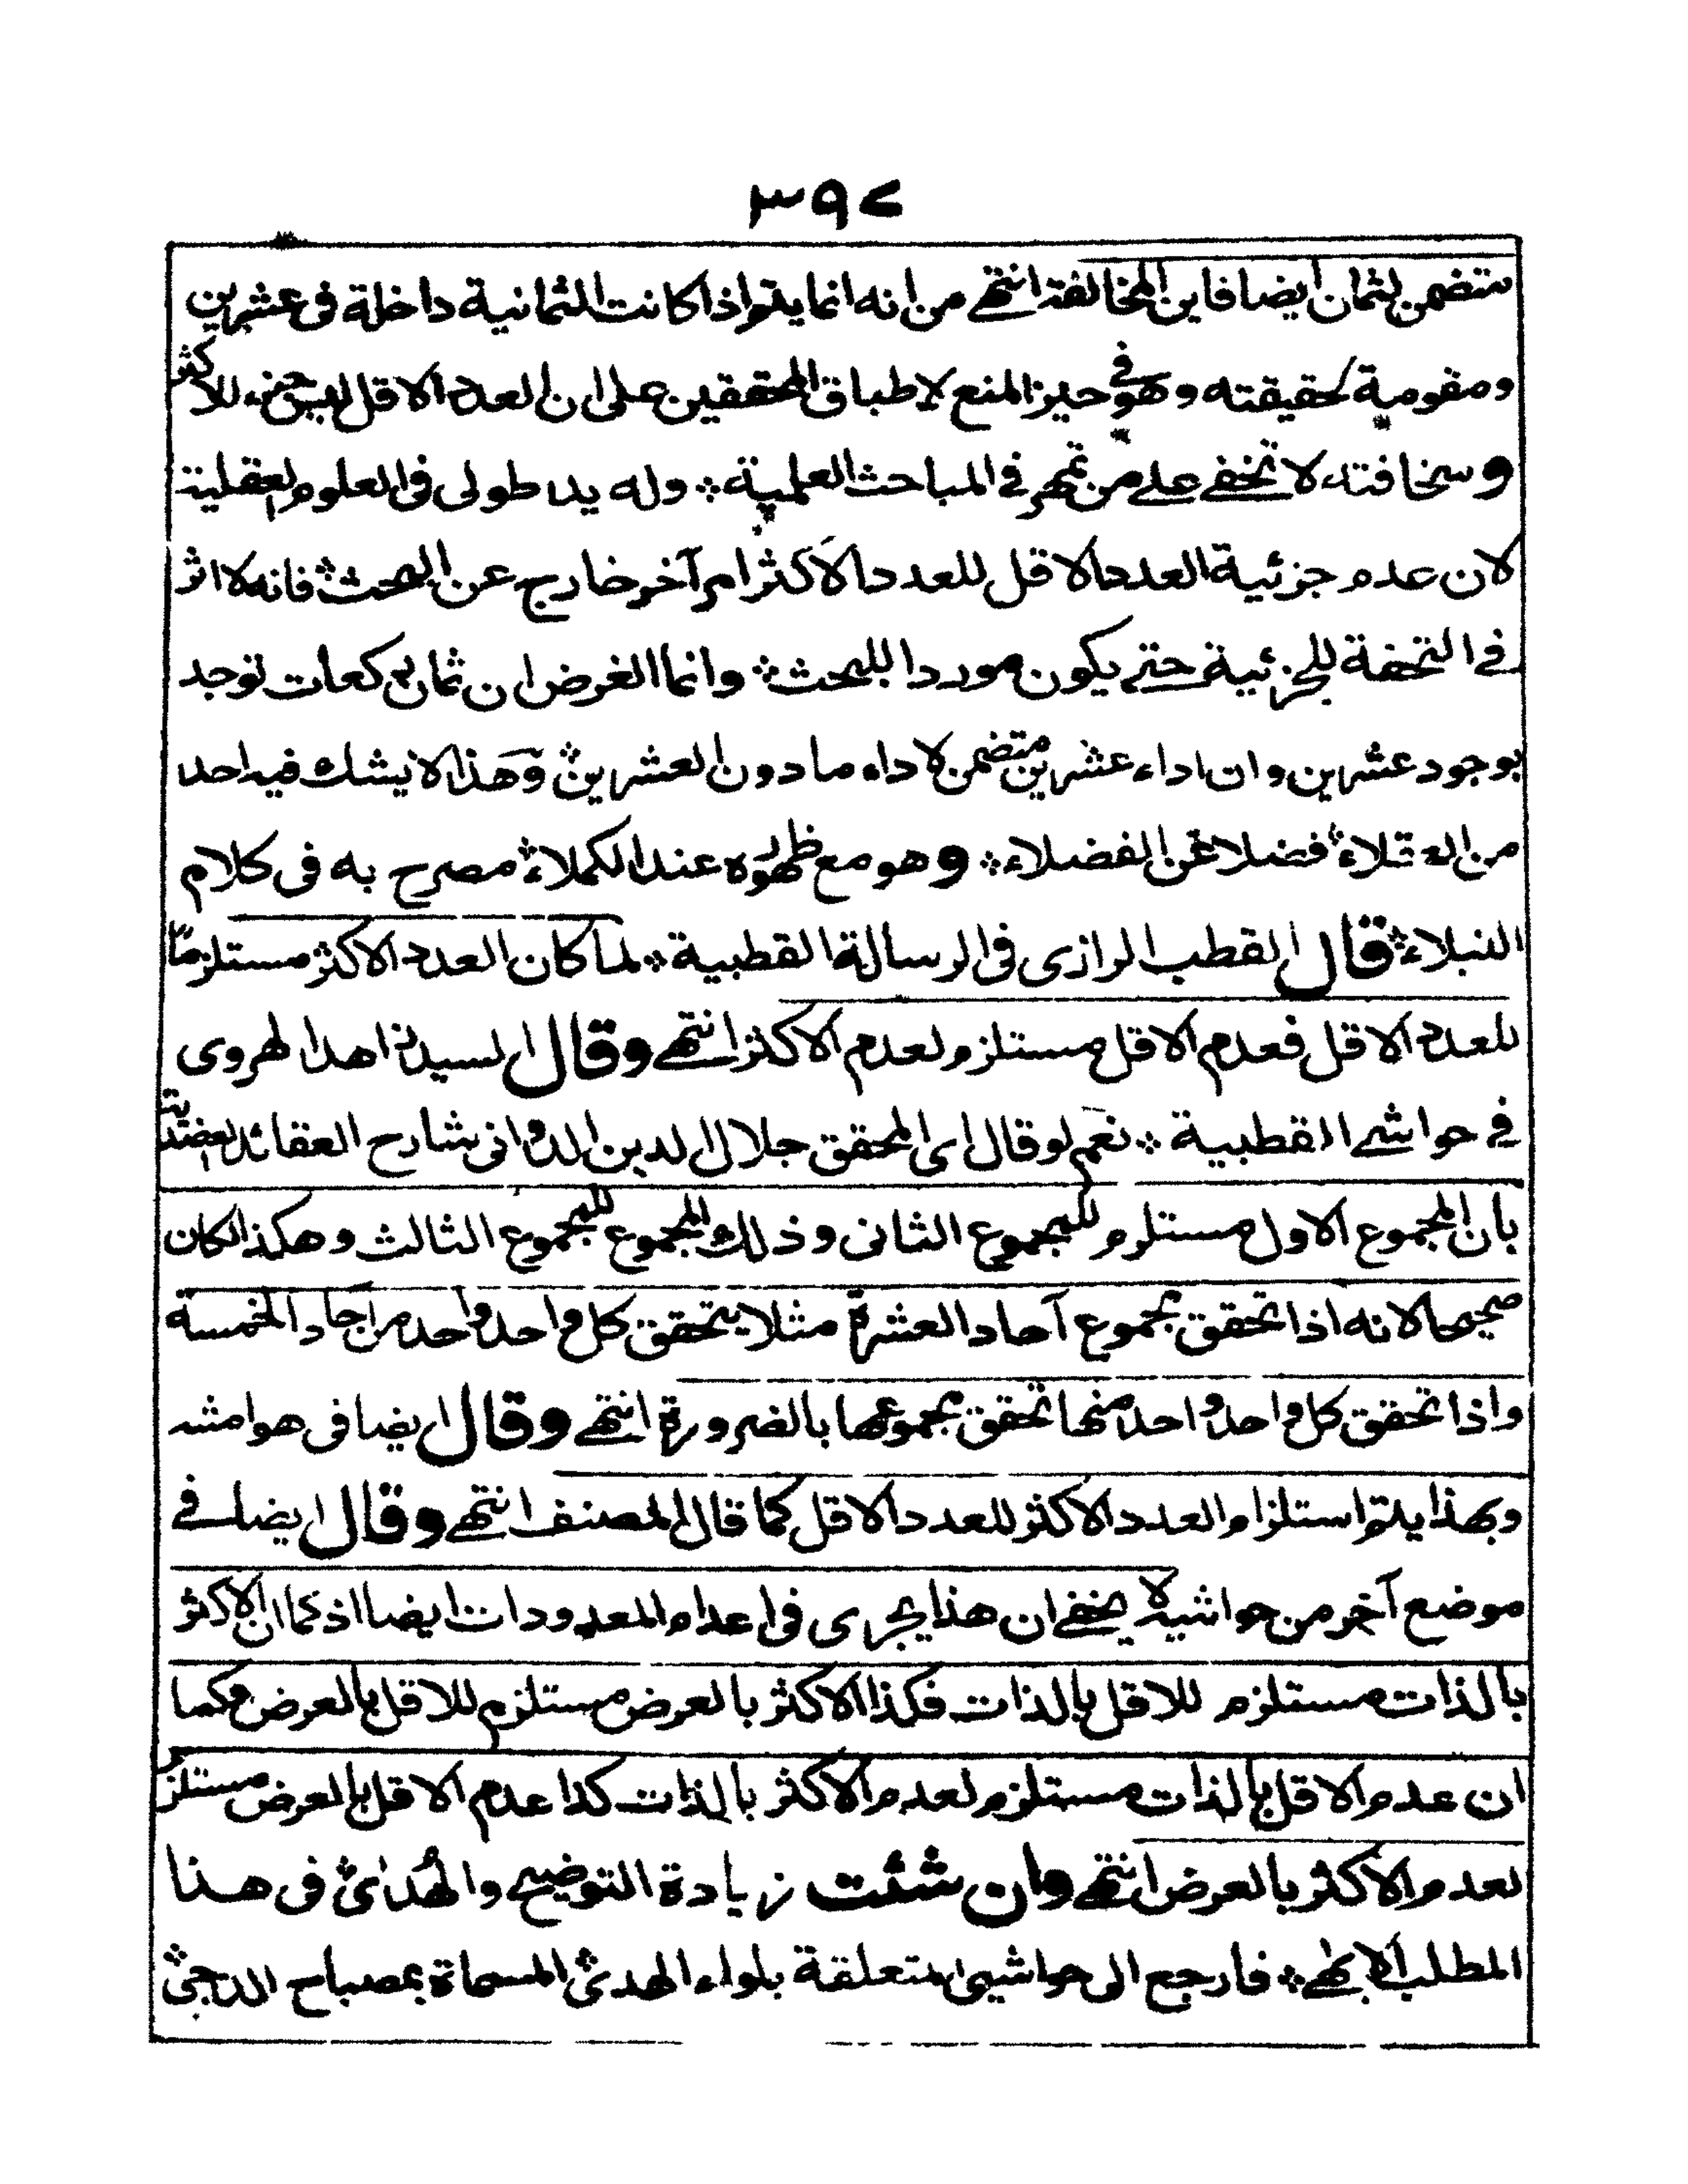 ٣٩٧
متضمن لثمان ايضا فاين المخالفة انتهى من انه انما يتم اذا كانت الثمانية داخلة فى عشرين
ومقومية لحقيقته وهو فى حيز المنع لاطباق المحققين على ان العدد الاقل ليس جزء للاكثر
وسخافته لا تخفى على من تمهر فى المباحث العلمية ؞ وله يد طولى فى العلوم العقلية
لان عدم جزئية العدد الاقل للعدد الاكثر امر آخر خارج عن البحث ؞ فانه لا اثر
فى التحفة للجزئية حتى يكون موردا للبحث ؞ وانما الغرض ان ثمان ركعات توجد
بوجود عشرين وان اداء عشرين متضمن لاداء ما دون العشرين ؞ وهذا لا يشك فيه احد
من العقلاء ؞ فضلا عن الفضلاء ؞ وهو مع ظهوره عند الكملاء ؞ مصرح به فى كلام
النبلاء ؞ قال القطب الرازى فى الرسالة القطبية ؞ لما كان العدد الاكثر مستلزما
للعدد الاقل فعدم الاقل مستلزم لعدم الاكثر انتهى وقال السيد زاهد الهروى
فى حواشى القطبية ؞ نعم لو قال اى المحقق جلال الدين الدوانى شارح العقائد العضدية
بان المجموع الاول مستلزم للمجموع الثانى وذلك المجموع للمجموع الثالث وهكذا لكان
صحيحا لانه اذا تحقق مجموع آحاد العشرة مثلا يتحقق كل واحد واحد من آحاد الخمسة
واذا تحقق كل واحد واحد منها تحقق مجموعها بالضرورة انتهى وقال ايضا فى هوامشه
وبهذا يتم استلزام العدد الاكثر للعدد الاقل كما قال المصنف انتهى وقال ايضا فى
موضع آخر من حواشيه لا يخفى ان هذا يجرى فى اعدام المعدودات ايضا اذ كما ان الاكثر
بالذات مستلزم للاقل بالذات فكذا الاكثر بالعرض مستلزم للاقل بالعرض وكما
ان عدم الاقل بالذات مستلزم لعدم الاكثر بالذات كذا عدم الاقل بالعرض مستلزم
لعدم الاكثر بالعرض انتهى وان شئت زيادة التوضيح والهدى ؞ فى هذا
المطلب الابهى ؞ فارجع الى حواشيى المتعلقة بلواء الهدى ؞ المسماة بمصباح الدجى ؞